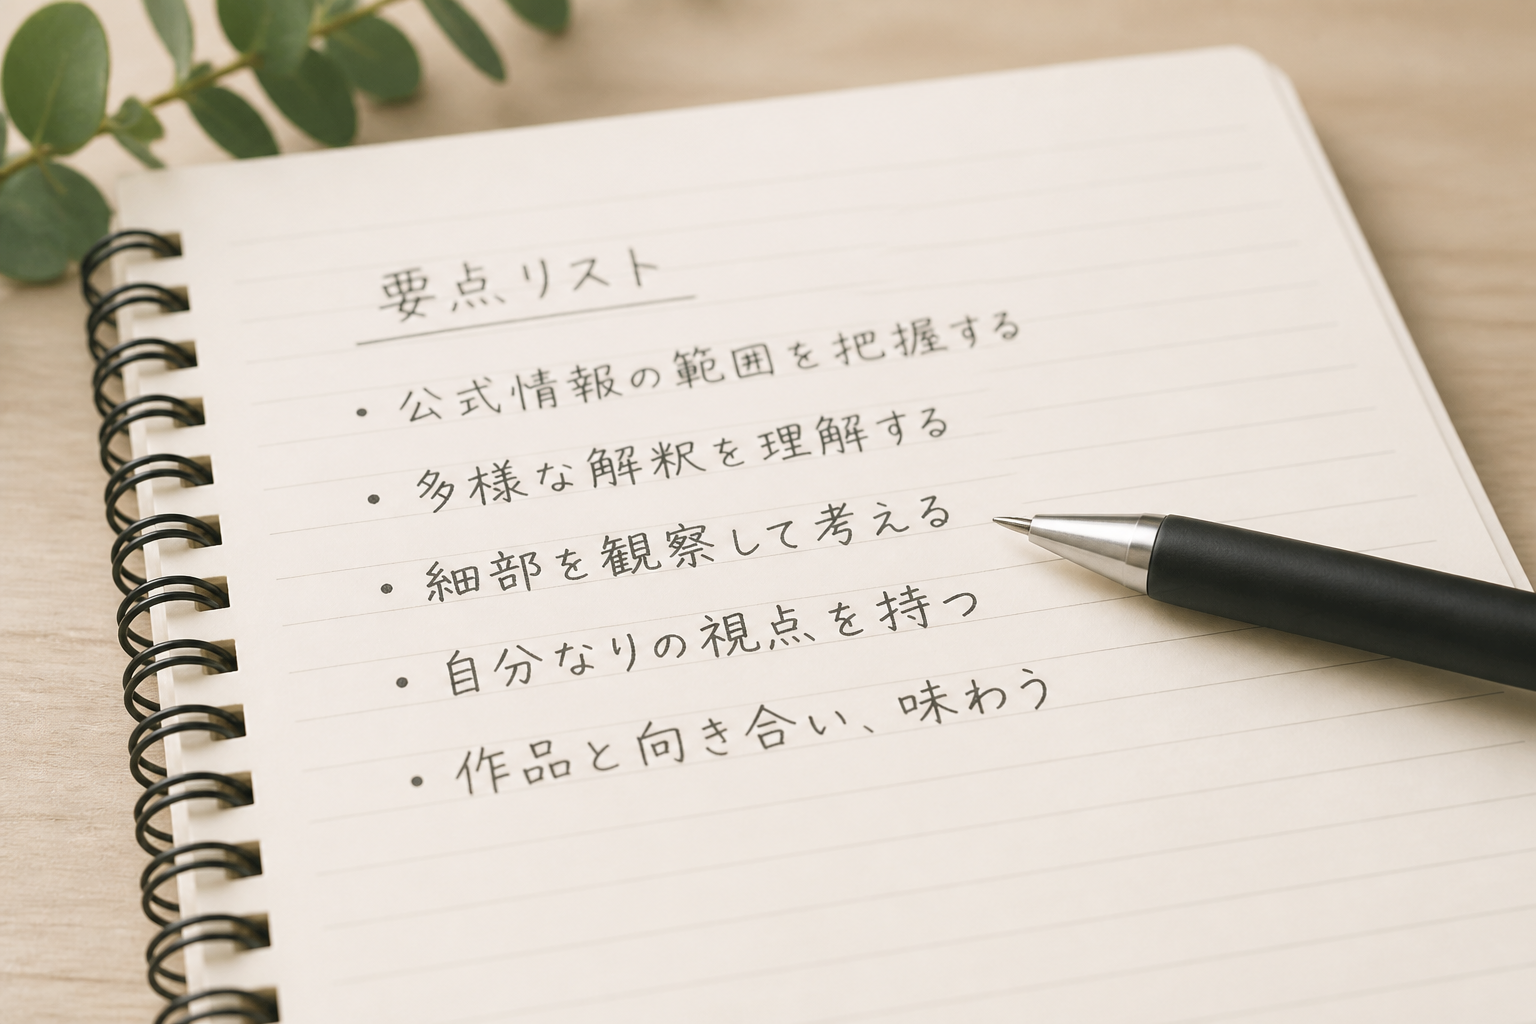 要点リスト
・公式情報の範囲を把握する
・多様な解釈を理解する
・細部を観察して考える
・自分なりの視点を持つ
・作品と向き合い、味わう